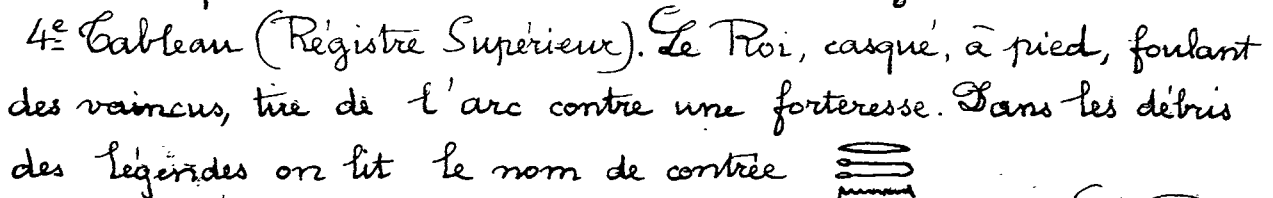 4e Tableau (Régistre Supérieur). Le Roi, casqué, à pied, foulant
des vaincus, tire de l'arc contre une forteresse. Dans les débris
des légendes on lit le nom de contrée